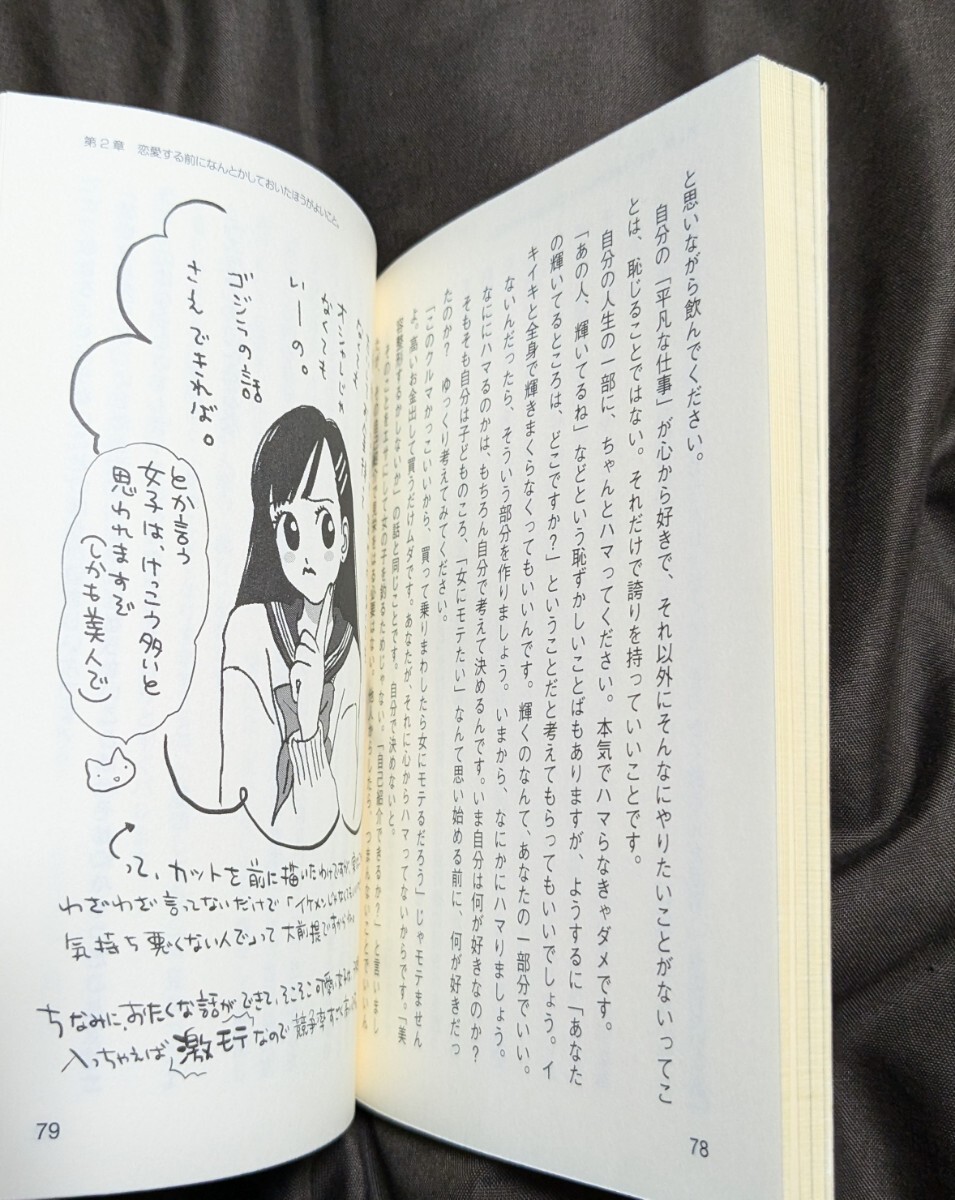 と思いながら飲んでください。
自分の「平凡な仕事」が心から好きで、それ以外にそんなにやりたいことがないってこ
とは、恥じることではない。それだけで誇りを持っていいことです。
自分の人生の一部に、ちゃんとハマってください。本気でハマらなきゃダメです。
「あの人、輝いてるね」などという恥ずかしいことばもありますが、ようするに「あなた
の輝いてるところは、どこですか?」ということだと考えてもらってもいいでしょう。イ
キイキと全身で輝きまくらなくってもいいんです。輝くのなんて、あなたの一部分でいい。
ないんだったら、そういう部分を作りましょう。いまから、なにかにハマりましょう。
なににハマるのかは、もちろん自分で考えて決めるんです。いま自分は何が好きなのか?
そもそも自分は子どものころ、「女にモテたい」なんて思い始める前に、何が好きだっ
たのか? ゆっくり考えてみてください。
「このクルマかっこいいから、買って乗りまわしたら女にモテるだろう」じゃモテません
よ。高いお金出して買うだけムダです。あなたが、それに心からハマってないからです。「美
容整形するかしないか」の話と同じことです。自分で決めないと。
そのことをエサにして女の子を釣るためじゃない。「自己紹介できるか?」と言いまし
78
第2章 恋愛する前になんとかしておいたほうがよいこと。
オシャレじゃ
なくても
いーの。
ゴジラの話
さえできれば。
とか言う
女子は、けっこう多いと
思われますぞ
(しかも美人で)
って、カットを前に描いたわけですが、
わざわざ言ってないだけで「イケメンじゃないし
気持ち悪くない人で」って大前提ですから
ちなみに、おたくな話ができて、そこそこ可愛い
入っちゃえば激モテなので競争率すごい
79